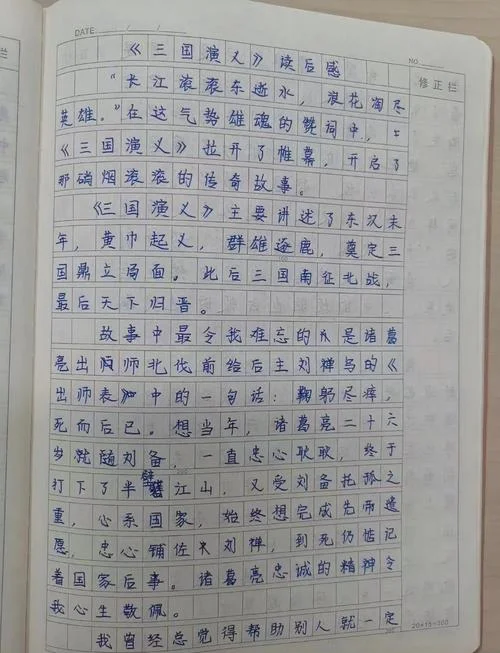 DATE
NO.
修正栏
《三国演义》读后感
“长江滚滚东逝水，浪花淘尽
英雄。”在这气势雄魂的赞词中，
《三国演义》拉开了帷幕，开启了
那硝烟滚滚的传奇故事。
《三国演义》主要讲述了东汉未
年，黄巾起义，群雄逐鹿，奠定三
国鼎立局面。此后三国南征北战，
最后天下归晋。
故事中最令我难忘的是诸葛
亮出师北伐前给后主刘禅写的《
出师表》中的一句话：鞠躬尽瘁，
死而后已。想当年，诸葛亮二十六
岁就随刘备，一直忠心耿耿，终于
打下了半壁江山，又受刘备托孤之
重，心系国家，始终想完成先帝遗
愿，忠心铺佐刘禅，到死仍惦记
着国家后事。诸葛亮忠诚的精神令
我心生敬佩。
我曾经总觉得帮助别人就一定
20×15=300